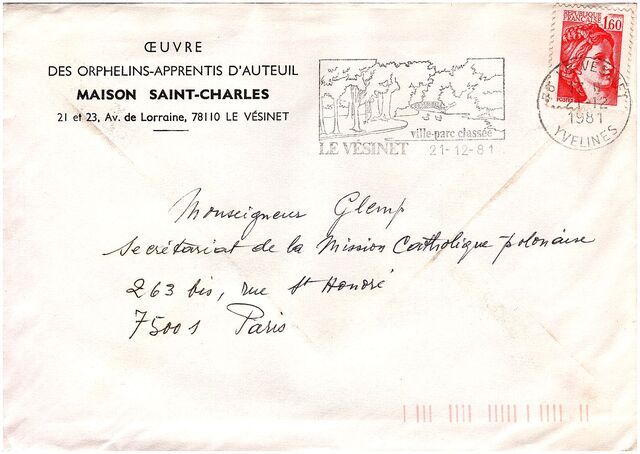 ŒUVRE
DES ORPHELINS-APPRENTIS D'AUTEUIL
MAISON SAINT-CHARLES
21 et 23, Av. de Lorraine, 78110 LE VÉSINET
ville-parc classée
LE VÉSINET 21-12-81
REPUBLIQUE
FRANÇAISE
1,60
POSTES
12
1981
YVELINES
Monseigneur Glemp
Secrétariat de la Mission Catholique polonaise
263 bis, rue St Honoré
75001 Paris